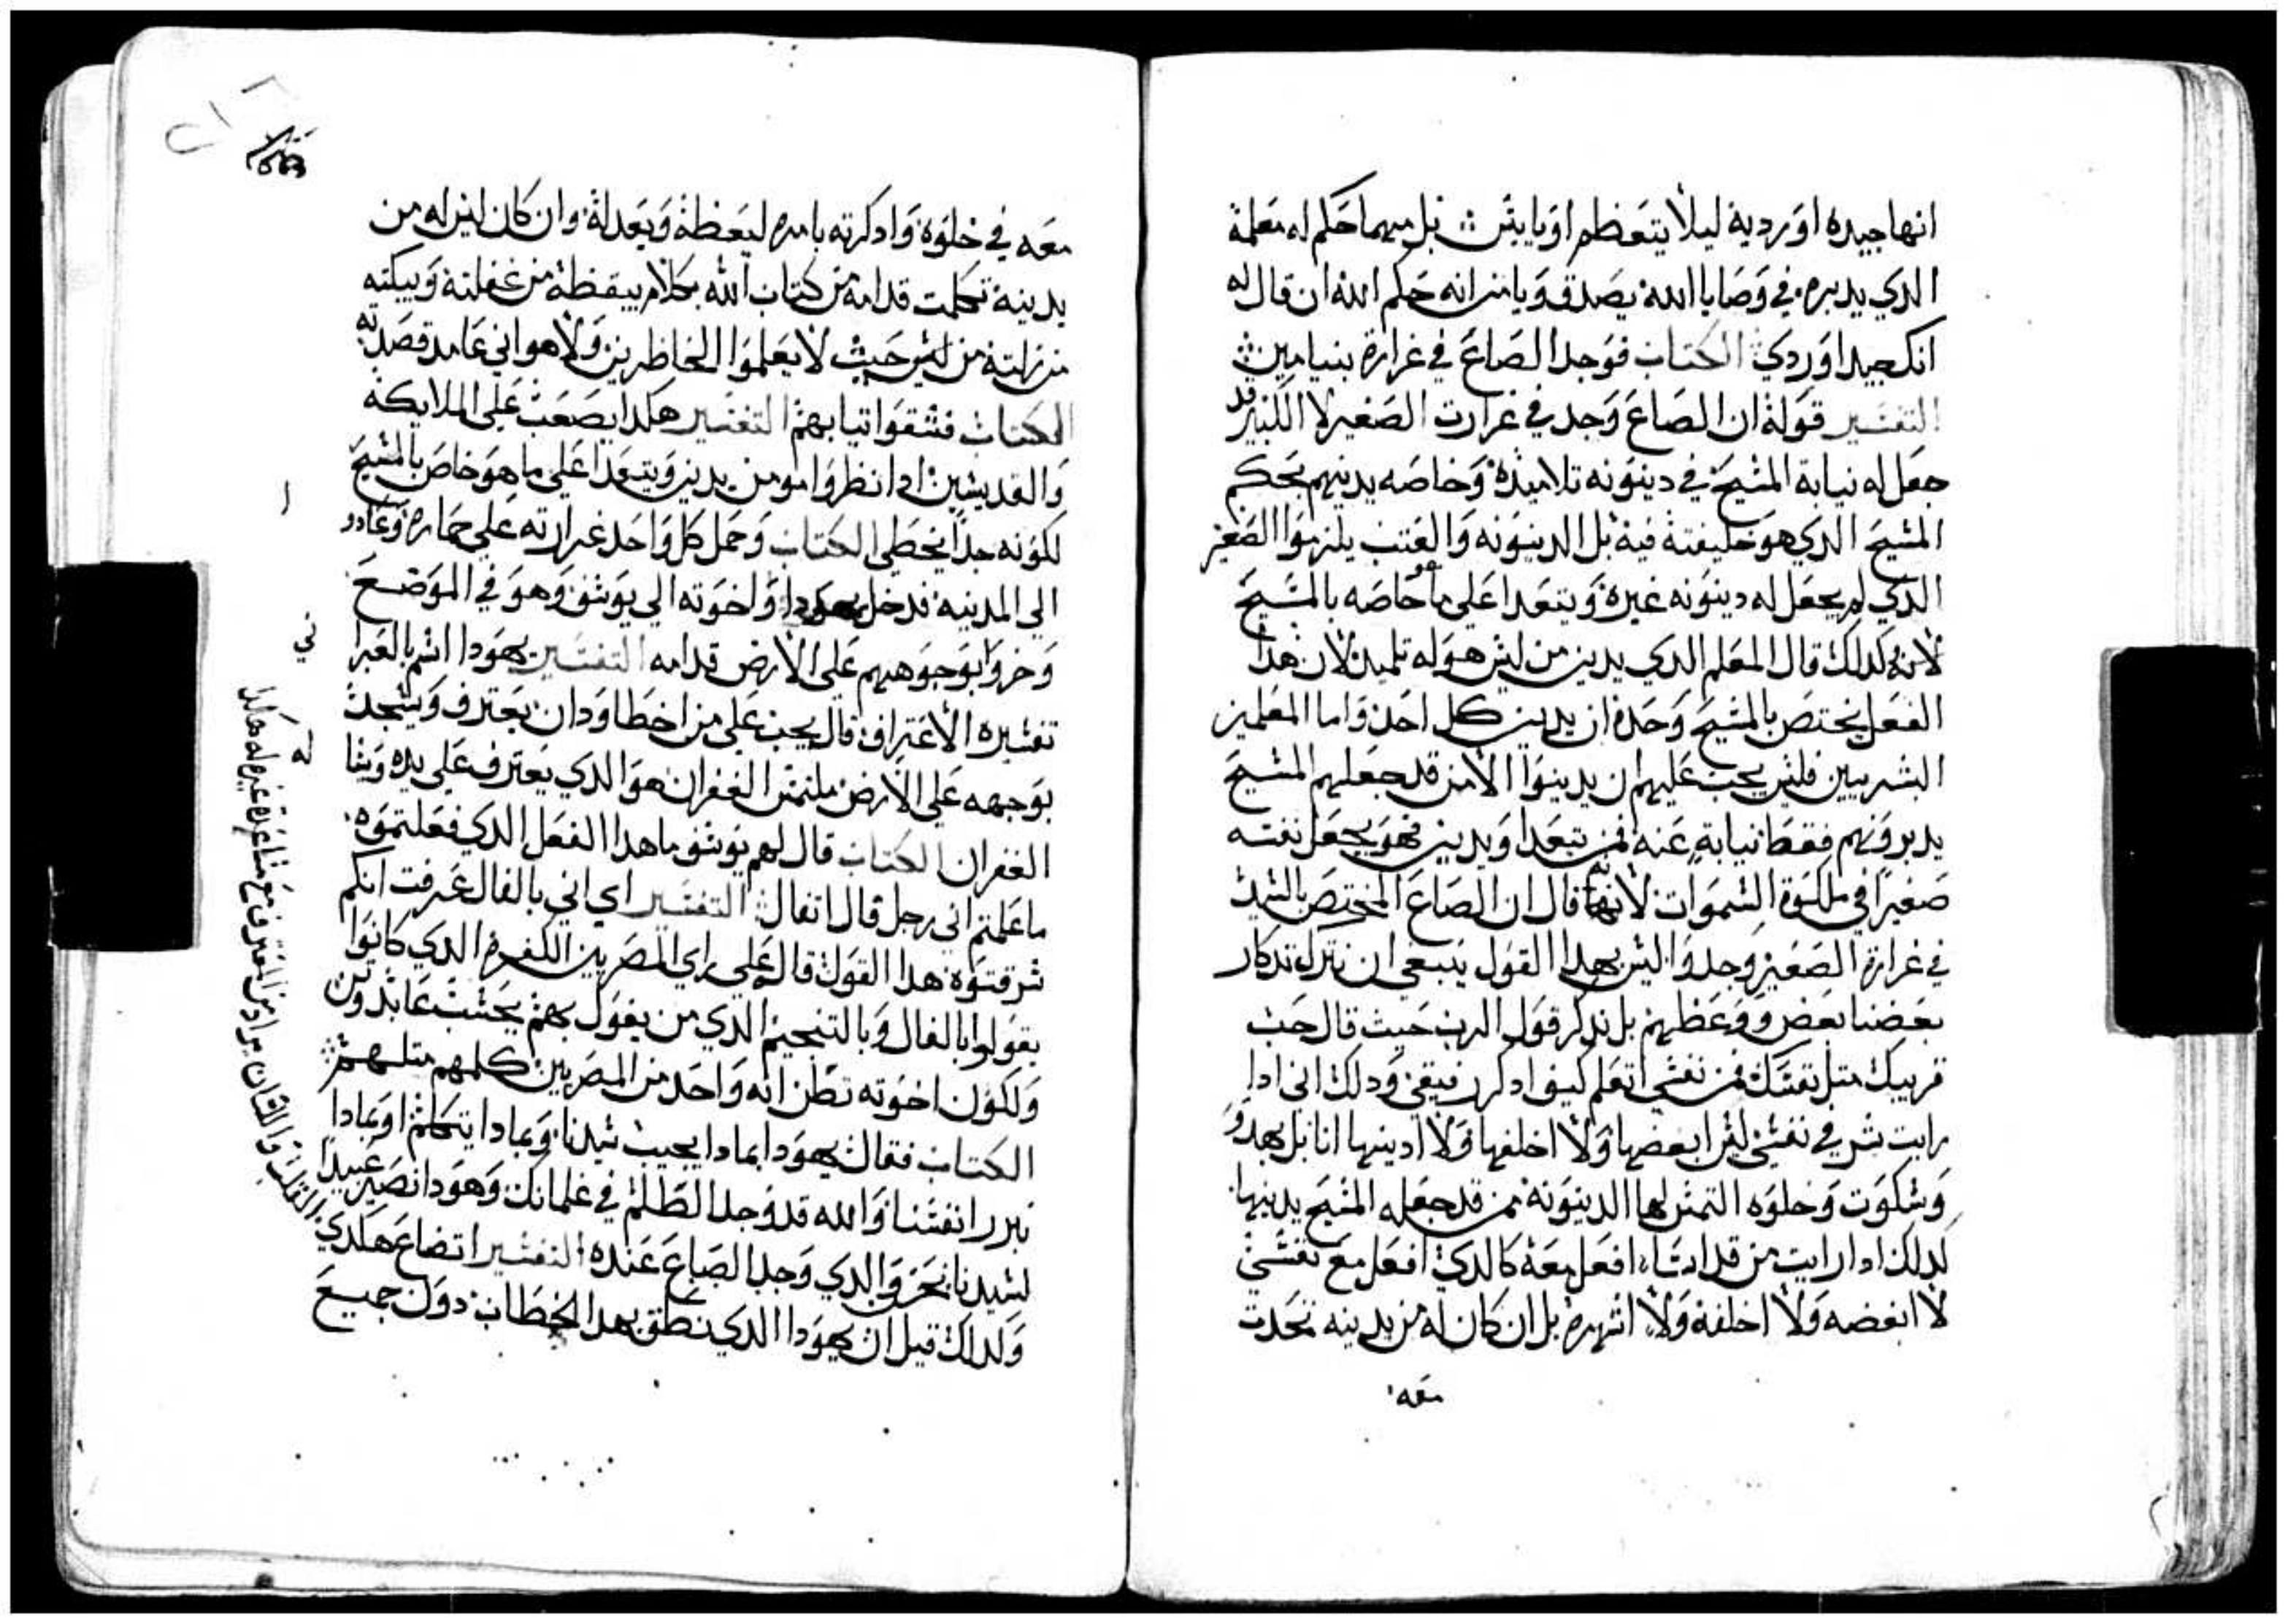 انها جيده او رديه ليلا يتعظم او يايئس بل مهما حكم له معلمة
الدي يدبره في وصايا الله يصدق ويامن انه حكم الله ان قال له
انك جيدا وردي الكتاب فوجد الصاع في غرارة بنيامين
التفسير قوله ان الصاع وجد في غرارت الصغير لا الكبير قد
جعل له نيابة المسيح في دينونه تلاميده وخاصه يدينهم بحكم
المسيح الدي هو خليفته فيه بل الدينونه والعتب يلزموا الصغير
الدي لم يجعل له دينونه غيره ويتعدا على ما هو خاصه بالمسيح
لانه كدلك قال المعلم الدي يدين من ليس هو له تلميد لان هدا
الفعل يختص بالمسيح وحده ان يدين كل احد واما المعلمين
البشريين فليس يجب عليهم ان يدينوا الا من قد جعلهم المسيح
يدبرونهم فقط نيابة عنه فمن تبعدا ويدين فهو يجعل نفسه
صغيرا في ملكوة السموات لانه قال ان الصاع المختص بالسيد
في غرارة الصغير وجد وا ليس بهدا القول ينبغي ان نترك تدكار
بعضنا بعض ووعظهم بل ندكر قول الرب حيث قال حب
قريبك متل نفسك فمن نفسي اتعلم كيف ادكر رفيقي ودلك اني ادا
رايت شر في نفسي ليس ابغضها ولا اخلفها ولا ادينها انا بل بهدو
وسكوت وخلوه التمس لها الدينونه ممن قد جعله المسيح يدينها
كدلك ادا رايت من قد اساء افعل معه كالدي افعل مع نفسي
لا ابغضه ولا اخلفه ولا اشهره بل ان كان له من يدينه تحدت
معه
معه في خلوه وادكرته بامره ليعظه ويعدله وان كان ليس له من
يدينه تكلمت قدامه من كتاب الله بكلام ييقظه من غفلته ويبكته
من زلته من ليس حيث لا يعلموا الحاظرين ولا هو اني عامد قصدته
الكتاب فشقوا تيابهم التفسير هكدا يصعب على الملايكه
والقديسين ادا نظروا مومن يدين ويتعدا على ما هو خاص بالمسيح
لكونه جدا يخطي الكتاب وحمل كل واحد غرارته على حماره وعادو
الى المدينه فدخل يهودا واخوته الي يوسف وهو في الموضع
وخروا بوجوههم على الارض قدامه التفسير يهودا اسم بالعبرا
تفسيره الاعتراف قال يجب على من اخطا ودان يعترف ويسجد
بوجهه على الارض ملتمس الغفران هو الدي يعترف على يده ويشا
الغفران الكتاب قال لهم يوسف ما هدا الفعل الدي فعلتموه
ما علمتم اني رجل قال اتفال التفسير اي اني بالفال عرفت انكم
سرقتوه هدا القول قال على راي المصريين الكفره الدي كانوا
يقولوا بالفال وبالتنجيم الدي من يقول بهم يحسب عابد وتن
ولكون اخوته تظن انه واحد من المصريين كلمهم متلهم
الكتاب فقال يهودا بمادا يجيب سيدنا وبمادا يتكلم او بمادا
نبرر انفسنا والله قد وجد الظلم في غلمانك وهودا نصير عبيدا
لسيدنا نحن والدي وجد الصاع عنده التفسير اتضاع هكدي
ولدلك قيل ان يهودا الدي نطق بهدا الخطاب دون جميع